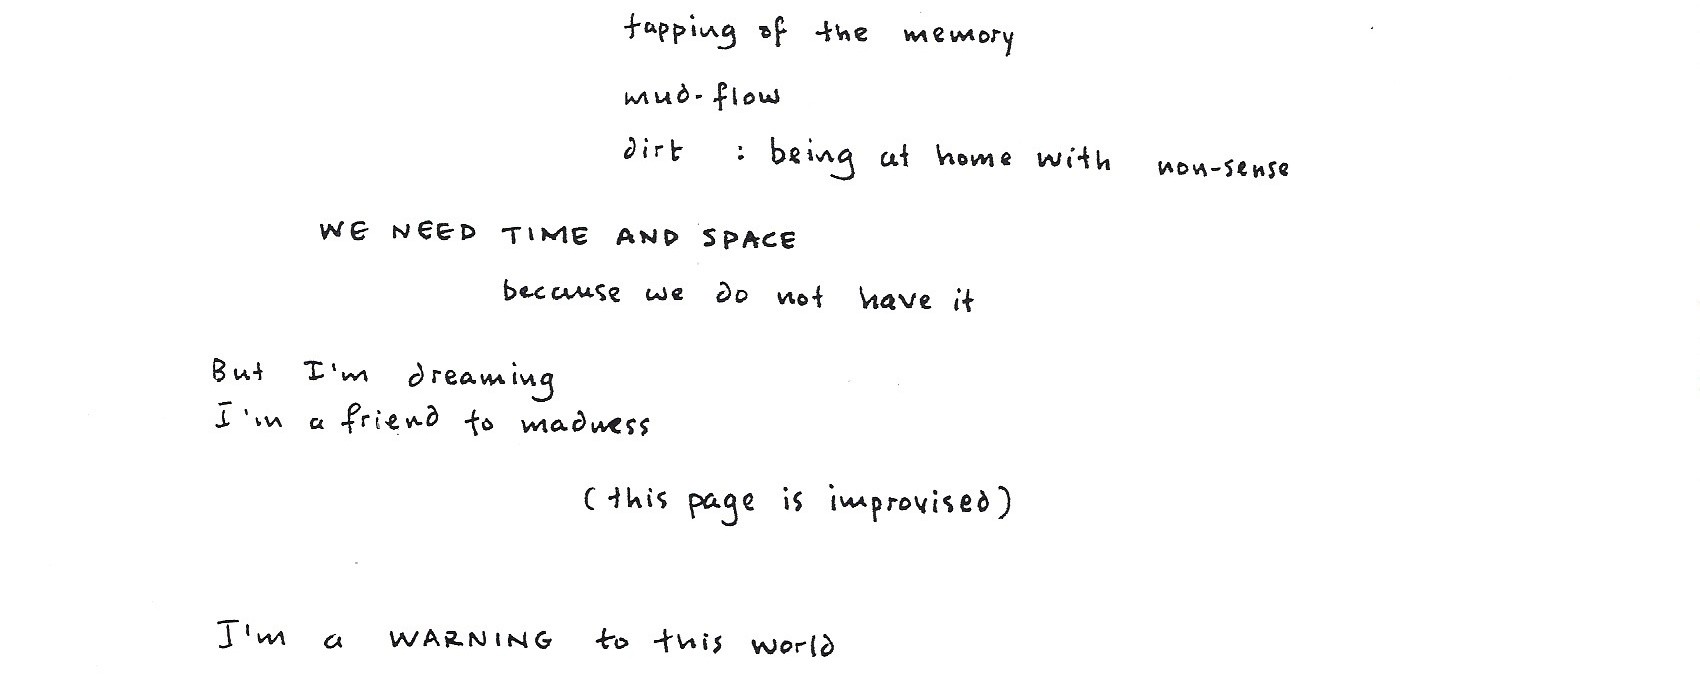 tapping of the memory
mud-flow
dirt : being at home with non-sense
WE NEED TIME AND SPACE
because we do not have it
But I'm dreaming
I'm a friend to madness
(this page is improvised)
I'm a WARNING to this world